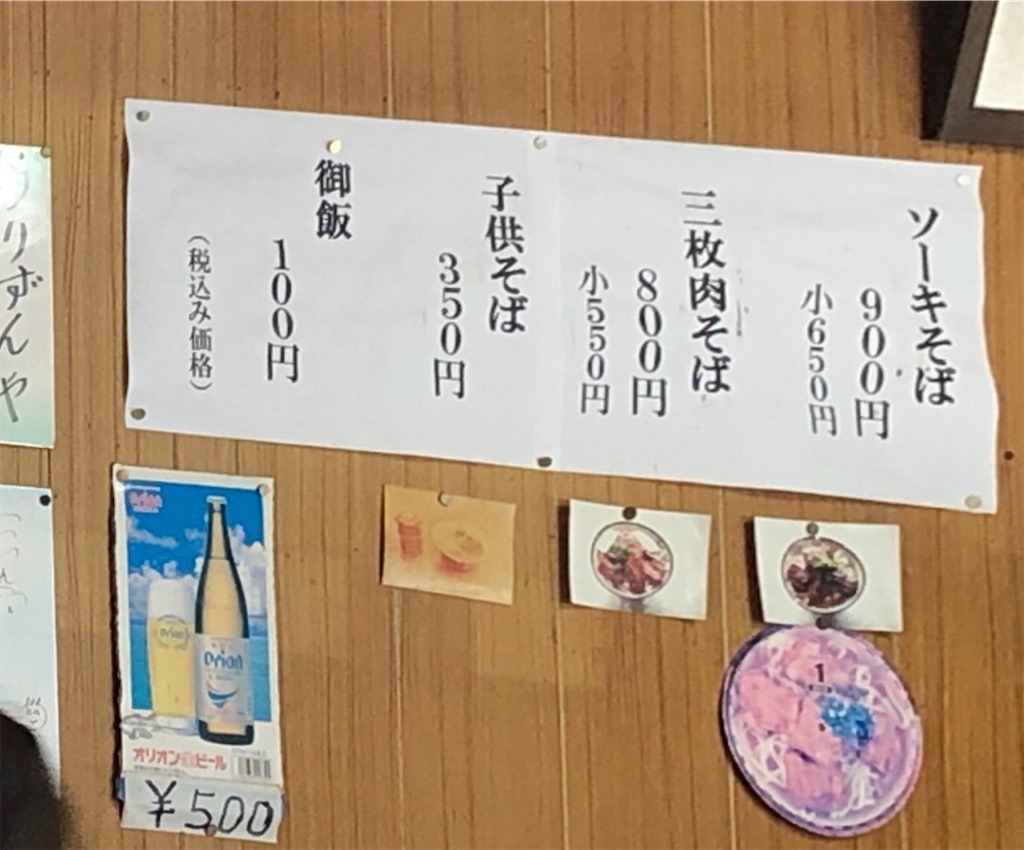 ソーキそば
900円
小650円
三枚肉そば
800円
小550円
子供そば
350円
御飯
100円
(税込み価格)
りずんや
Orion
Orion
オリオン
ビール
¥500
1